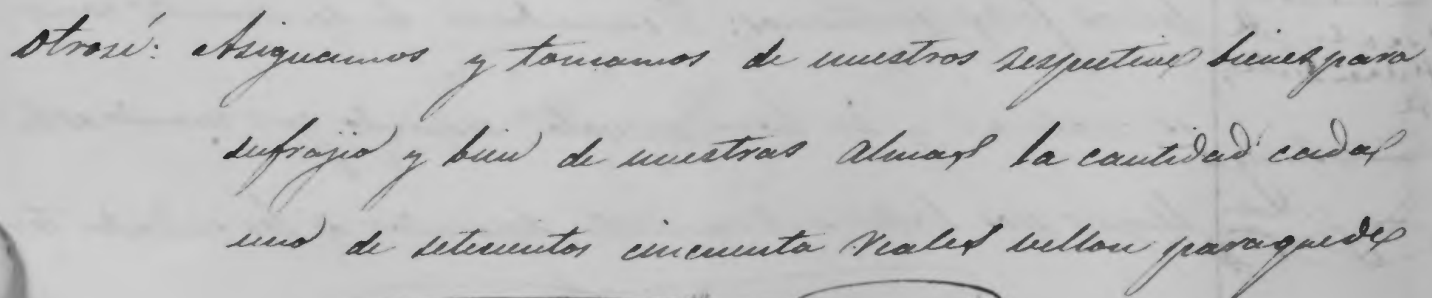 Otrosí: Asignamos y tomamos de nuestros respective bienes para
sufrajio y bien de nuestras almas la cantidad cada
uno de setecientos cincuenta reales vellon paraque de